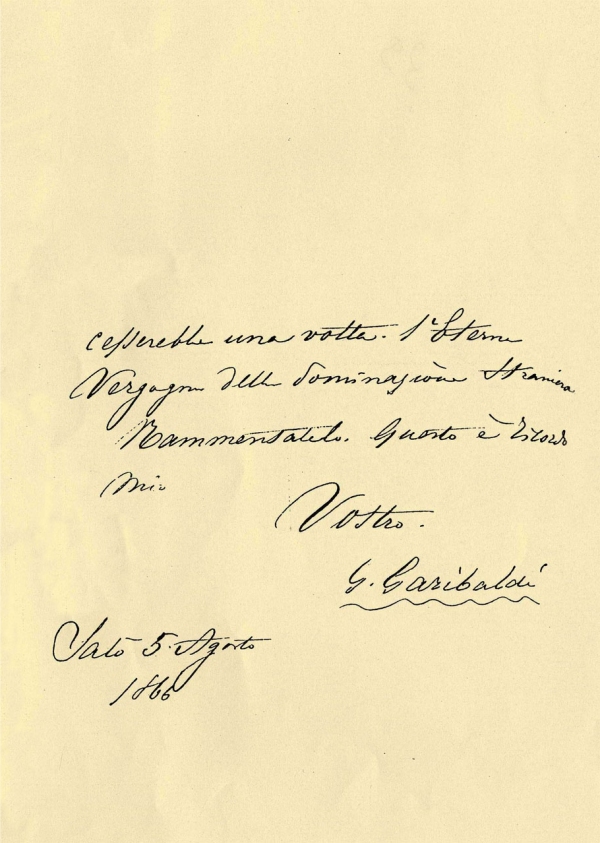 cesserebbe una volta. l'Eterna
Vergogna della dominazione Straniera
Rammentatelo. Questo è ricordo
Mio
Vostro.
G. Garibaldi
Salò 5. Agosto
1866